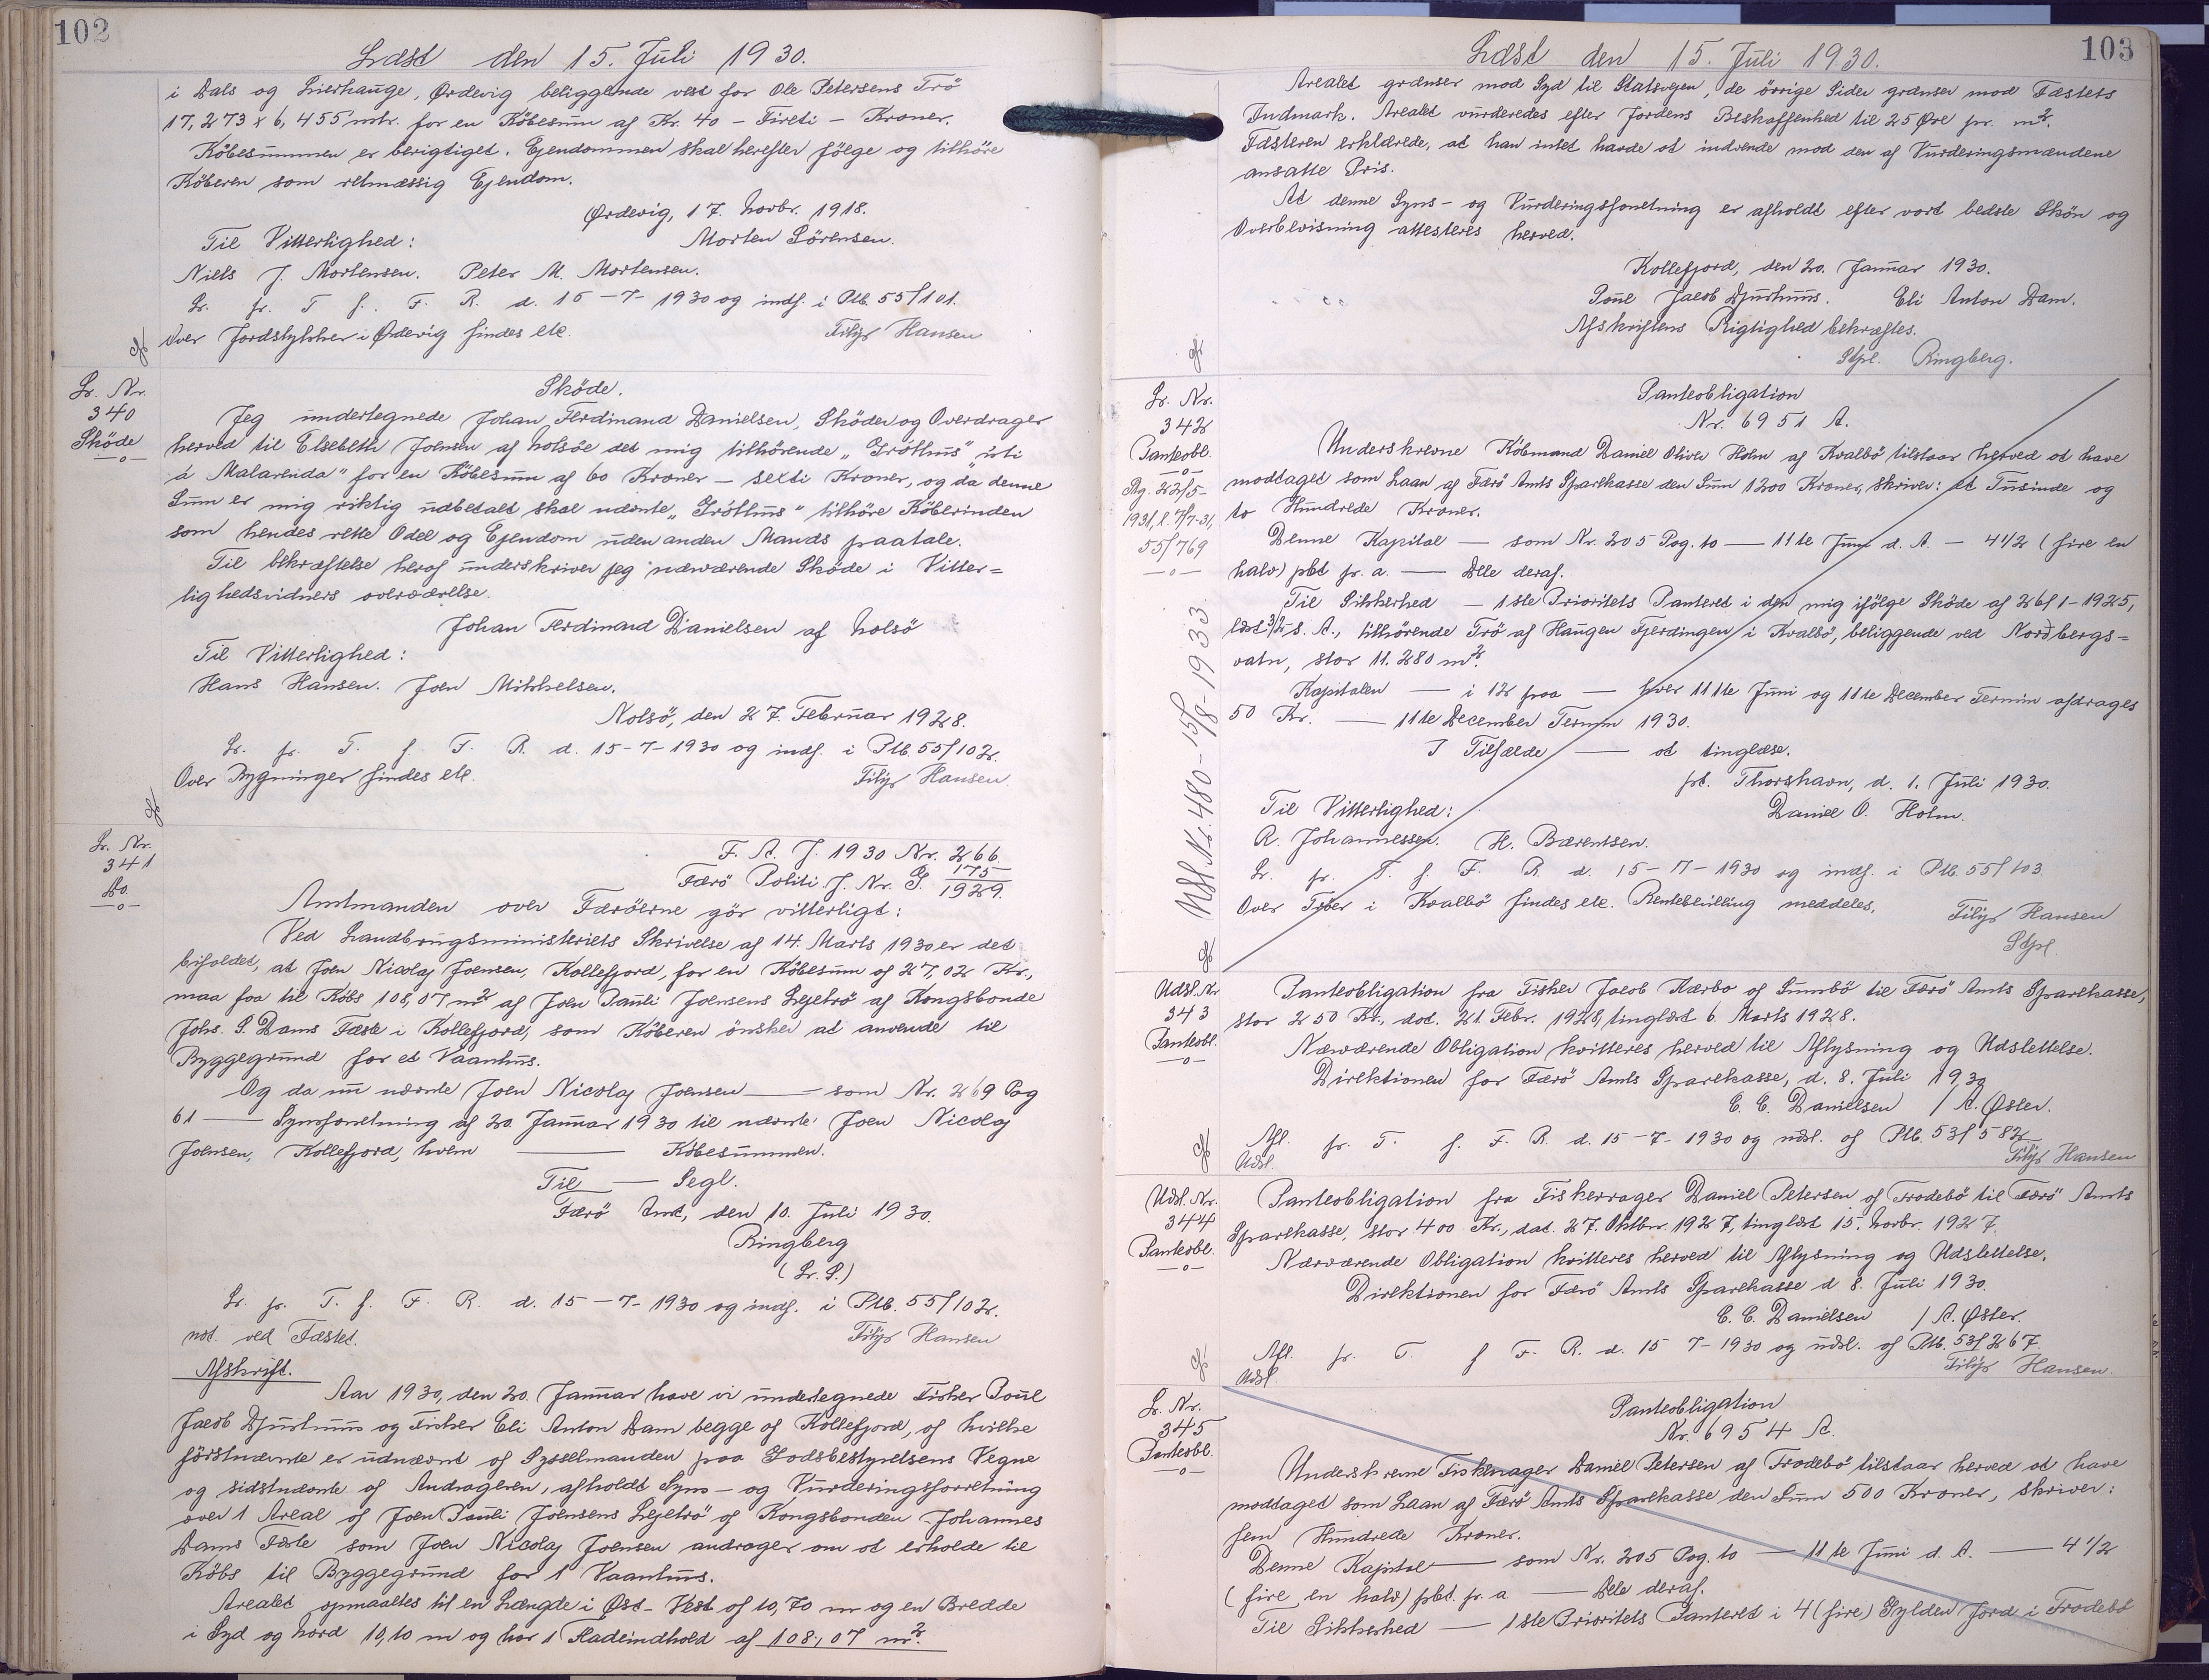 102
Læst den 15. Juli 1930.
i Dals og Lierhauge, Ørdevig beliggende vest for Ole Petersens Trö
17,273 x 6,455 mtr. for en Köbesum af Kr. 40 - Fireti - Kroner.
Köbesummen er berigtiget. Ejendommen skal herefter fölge og tilhöre
Köberen som retmæssig Ejendom.
Ørdevig, 17. Novbr. 1918.
Til Vitterlighed: Morten Sörensen.
Niels J. Mortensen. Peter M. Mortensen.
Lr. fr. T. f. F. R. d. 15-7-1930 og indf. i Ptb. 55/101.
Over Jordstykker i Ørdevig findes etc. Filip Hansen
Lr. Nr.
340
Sköde
Sköde.
Jeg undertegnede Johan Ferdinand Danielsen, Sköder og Overdrager
herved til Elsebeth Joensen af Nolsöe det mig tilhörende „Gróthus" úti
á Malarenda" for en Köbesum af 60 Kroner - sexti Kroner, og da denne
Sum er mig riktig udbetalt skal nævnte „Gróthus" tilhöre Köberinden
som hendes rette Odel og Ejendom uden anden Mands paatale.
Til bekræftelse heraf underskriver jeg nærværende Sköde i Vitter=
lighedsvidners overværelse.
Johan Ferdinand Danielsen af Nolsö
Til Vitterlighed:
Hans Hansen. Joen Mikkelsen.
Nolsö, den 27. Februar 1928.
Lr. fr. T. f. F. R. d. 15-7-1930 og indf. i Ptb 55/102.
Over Bygninger findes etc. Filip Hansen.
Lr. Nr.
341
Do.
F. A. J. 1930 Nr. 266.
Færö Politi J. Nr. S. 175/1929.
Amtmanden over Færöerne gör vitterligt:
Ved Landbrugsministeriets Skrivelse af 14. Marts 1930 er det
bifaldet, at Joen Nicolaj Joensen, Kollefjord, for en Köbesum af 27,02 Kr.,
maa faa til Köbs 108,07 m² af Joen Pauli Joensens Lejetrö af Kongsbonde
Johs. S. Dams Fæste i Kollefjord, som Köberen önsker at anvende til
Byggegrund for et Vaanhus.
Og da nu nævnte Joen Nicolaj Joensen — som Nr. 269 Pag
61 — Synsforretning af 20. Januar 1930 til nævnte Joen Nicolaj
Joensen, Kollefjord, hvem — Köbesummen.
Til — Segl.
Færö Amt, den 10. Juli 1930.
Ringberg
(L. S.)
Lr. fr. T. f. F. R. d. 15-7-1930 og indf. i Ptb. 55/102.
not. ved Fæstet. Filip Hansen
Afskrift.
Aar 1930, den 20. Januar have vi undertegnede Fisker Poul
Jacob Djurhuus og Fisker Eli Anton Dam begge af Kollefjord, af hvilke
förstnævnte er udnævnt af Sysselmanden paa Jordsbestyrelsens Vegne
og sidstnævnte af Andrageren, afholdt Syns- og Vurderingsforretning
over 1 Areal af Joen Pauli Joensens Lejetrö af Kongsbonden Johannes
Dams Fæste som Joen Nicolaj Joensen andrager om at erholde til
Köbs til Byggegrund for 1 Vaanhus.
Arealet opmaaltes til en Længde i Øst-Vest af 10,70 m og en Bredde
i Syd og Nord 10,10 m og har 1 Fladeindhold af 108,07 m².
103
Læst den 15. Juli 1930.
Arealet grænser mod Syd til Statsvejen, de övrige Sider grænser mod Fæstets
Indmark. Arealet vurderedes efter Jordens Beskaffenhed til 25 Øre pr. m².
Fæsteren erklærede, at han intet havde at indvende mod den af Vurderingsmændene
ansatte Pris.
At denne Syns- og Vurderingsforretning er afholdt efter vort bedste Skön og
Overbevisning attesteres herved.
Kollefjord, den 20. Januar 1930.
Poul Jacob Djurhuus. Eli Anton Dam.
Afskriftens Rigtighed bekræftes.
Stpl. Ringberg.
Lr. Nr.
342
Panteobl.
Rg. 22/5-
1931, l. 7/7-31,
55/769
Udsl. Nr. 480-15/8-1933
Panteobligation
Nr. 6951 A.
Underskrevne Köbmand Daniel Oliver Holm af Kvalbö tilstaar herved at have
modtaget som Laan af Færö Amts Sparekasse den Sum 1200 Kroner, skriver: et Tusinde og
to Hundrede Kroner.
Denne Kapital — som Nr. 205 Pag. 10 — 11te Juni d. A. — 4 1/2 (fire en
halv) pct pr. a. — Dele deraf.
Til Sikkerhed — 1ste Prioritets Panteret i den mig ifölge Sköde af 26/1-1925,
læst 3/2 s. A., tilhörende Trö af Haugen Fjerdingen i Kvalbö, beliggende ved Nordbergs=
vatn, stor 11.280 m².
Kapitalen — i 12 paa — hver 11te Juni og 11te December Termin afdrages
50 Kr. — 11te December Termin 1930.
I Tilfælde — at tinglæse.
pt. Thorshavn, d. 1. Juli 1930.
Til Vitterlighed: Daniel O. Holm.
R. Johannessen. H. Bærentsen.
Lr. fr. T. f. F. R. d. 15-7-1930 og indf. i Ptb. 55/103.
Over Tröer i Kvalbö findes etc. Rentestilling meddeles. Filip Hansen
Stpl.
Udsl. Nr
343
Panteobl.
Panteobligation fra Fisker Jacob Kærbo af Sumbö til Færö Amts Sparekasse,
stor 250 Kr., dat. 21. Febr. 1928, tinglæst 6. Marts 1928.
Nærværende Obligation kvitteres herved til Aflysning og Udslettelse.
Direktionen for Færö Amts Sparekasse, d. 8. Juli 1930
C. C. Danielsen / A. Øster.
Afl. fr. T. f. F. R. d. 15-7-1930 og udsl. af Ptb. 53/582
Udsl. Filip Hansen
Udsl. Nr.
344
Panteobl.
Panteobligation fra Fiskerrager Daniel Petersen af Frodebö til Færö Amts
Sparekasse, stor 400 Kr., dat. 27. Oktbr. 1927, tinglæst 15. Novbr. 1927.
Nærværende Obligation kvitteres herved til Aflysning og Udslettelse.
Direktionen for Færö Amts Sparekasse d. 8. Juli 1930.
C. C. Danielsen / A. Øster.
Afl. fr. T. f F. R. d. 15 7-1930 og udsl. af Ptb. 53/267.
Udsl Filip Hansen.
Lr. Nr.
345
Panteobl.
Panteobligation
Nr. 6954 A.
Underskrevne Fiskerrager Daniel Petersen af Frodebö tilstaar herved at have
modtaget som Laan af Færö Amts Sparekasse den Sum 500 Kroner, skriver:
fem Hundrede Kroner.
Denne Kapital — som Nr. 205 Pag. 10 — 11te Juni d. A. — 4 1/2
(fire en halv) pct. pr. a — Dele deraf.
Til Sikkerhed — 1ste Prioritets Panteret i 4 (fire) Gylden Jord i Frodebö